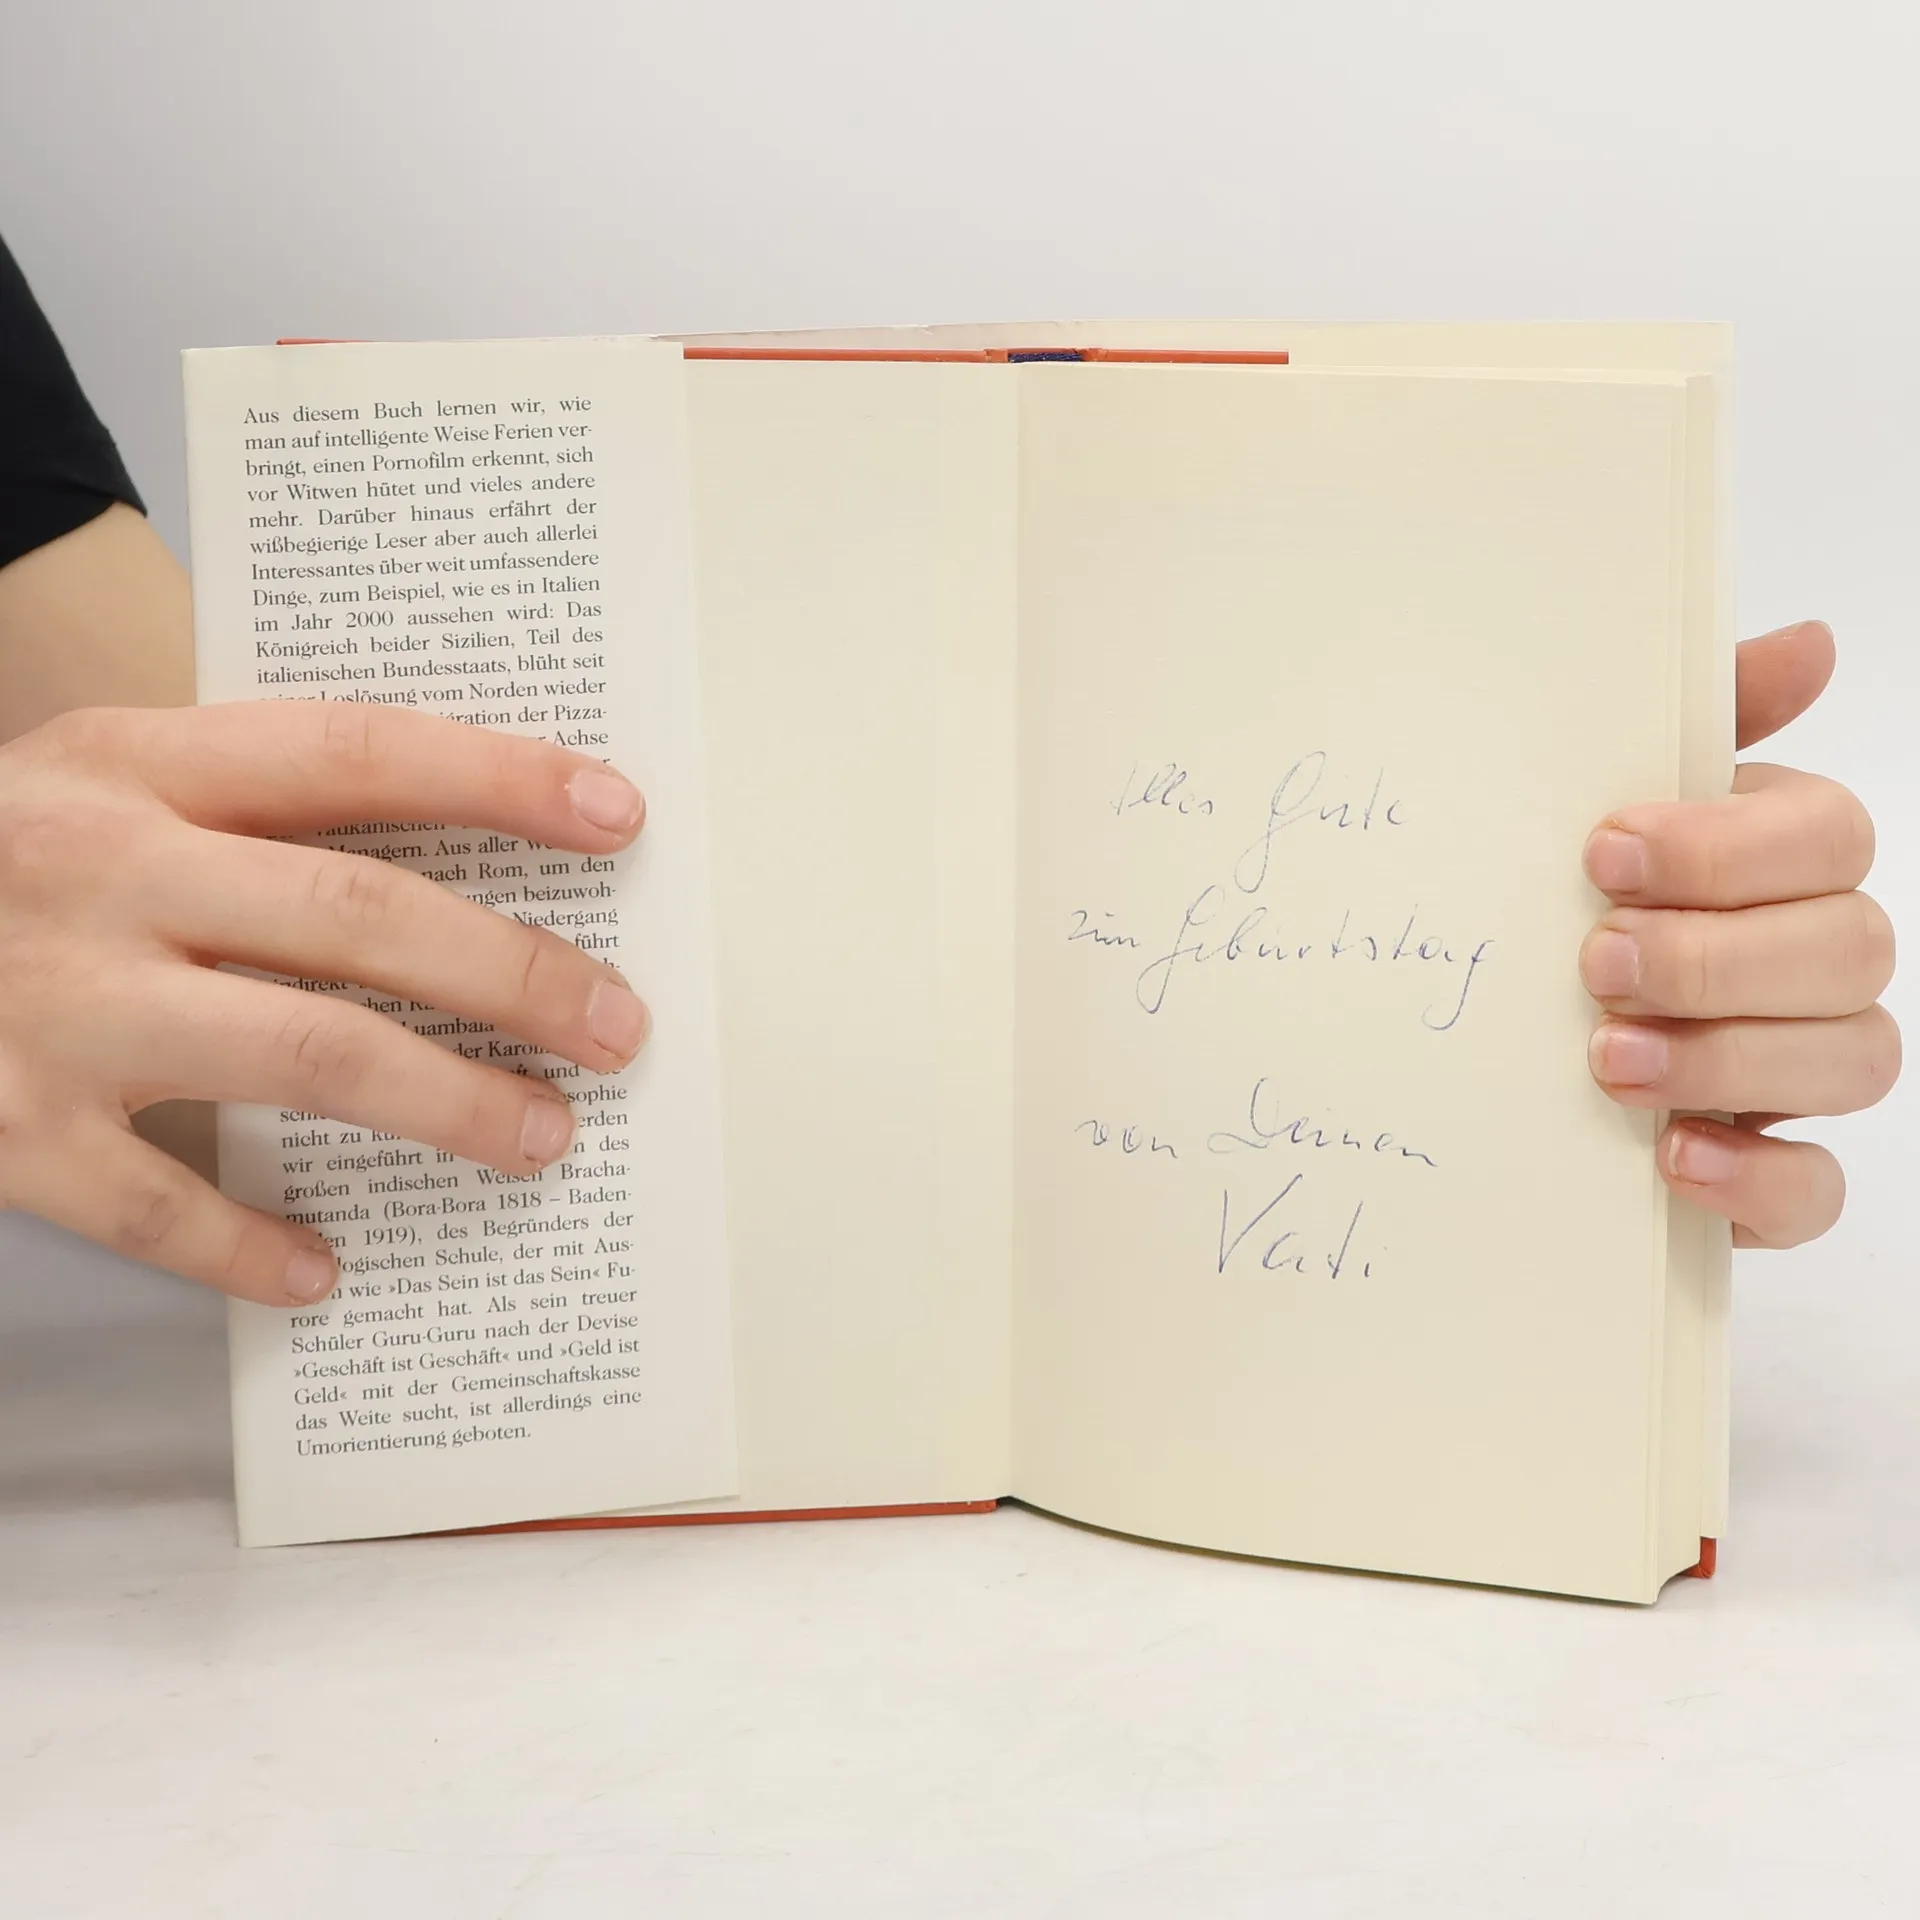 Aus diesem Buch lernen wir, wie
man auf intelligente Weise Ferien ver-
bringt, einen Pornofilm erkennt, sich
vor Witwen hütet und vieles andere
mehr. Darüber hinaus erfährt der
wißbegierige Leser aber auch allerlei
Interessantes über weit umfassendere
Dinge, zum Beispiel, wie es in Italien
im Jahr 2000 aussehen wird: Das
Königreich beider Sizilien, Teil des
italienischen Bundesstaats, blüht seit
Loslösung vom Norden wieder
der Pizza-
Achse
Managern. Aus aller
nach Rom, um den
beizuwoh-
Niedergang
führt
indirekt
der
und
nicht zu
wir eingeführt in des
großen indischen Weisen Bracha-
mutanda (Bora-Bora 1818 – Baden-
1919), des Begründers der
Schule, der mit Aus-
wie »Das Sein ist das Sein« Fu-
rore gemacht hat. Als sein treuer
Schüler Guru-Guru nach der Devise
»Geschäft ist Geschäft« und »Geld ist
Geld« mit der Gemeinschaftskasse
das Weite sucht, ist allerdings eine
Umorientierung geboten.
Alles Gute
zum Geburtstag
von Deinem
Vati